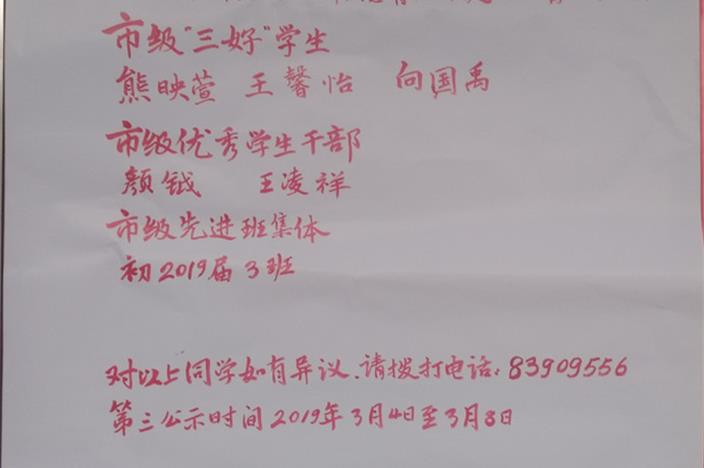 市级“三好”学生
熊映萱 王馨怡 向国禹
市级优秀学生干部
颜钺 王凌祥
市级先进班集体
初2019届3班
对以上同学如有异议、请拨打电话:83909556
第三公示时间2019年3月4日至3月8日